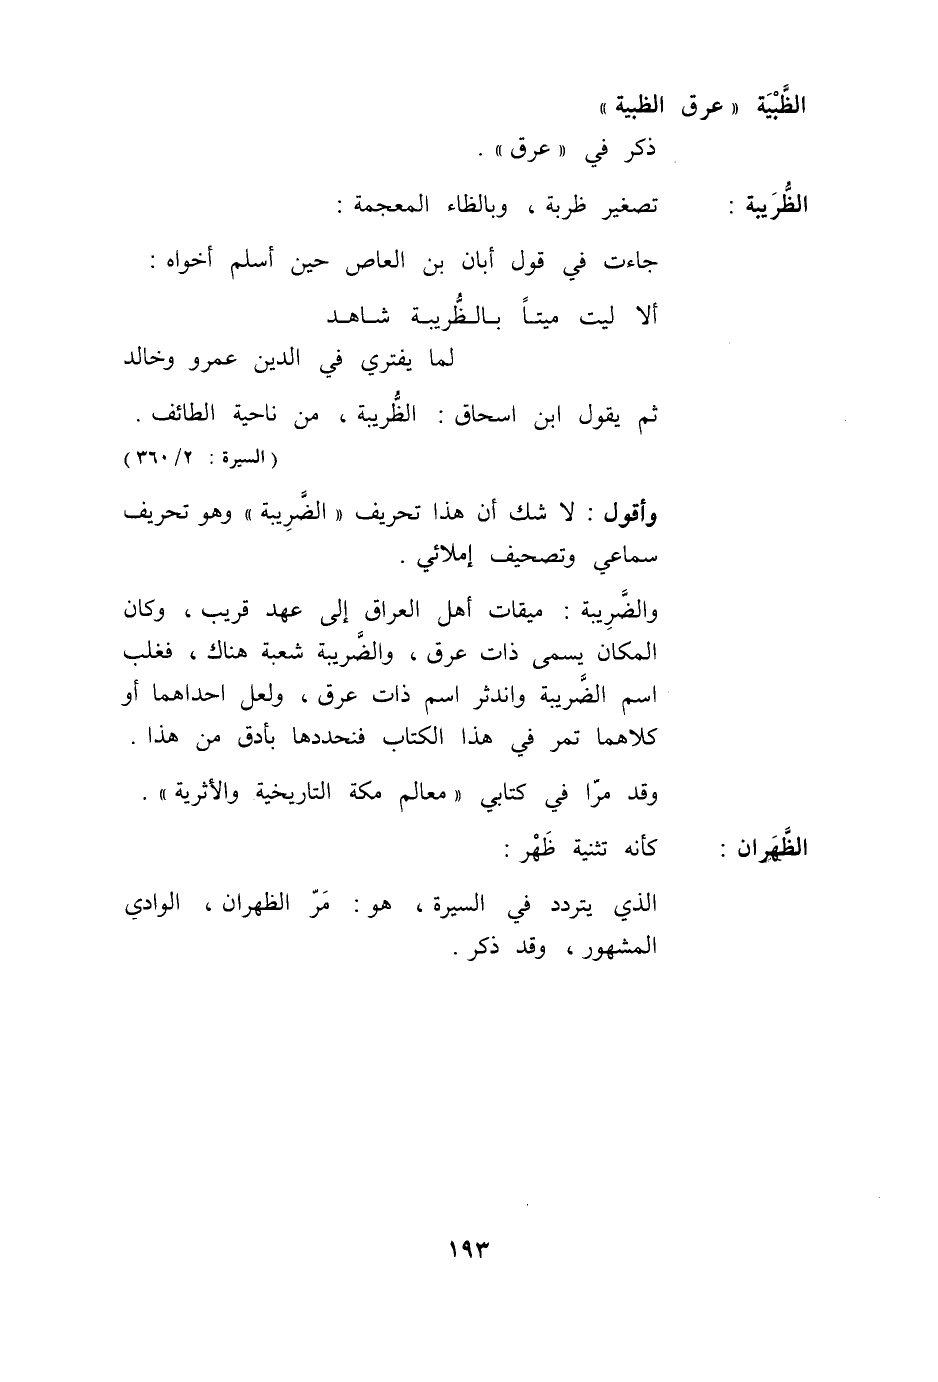 الظَّبْيَة « عرق الظبية »
ذكر في « عرق » .
الظُّرَيبة : تصغير ظربة ، وبالظاء المعجمة :
جاءت في قول أبان بن العاص حين أسلم أخواه :
ألا ليت ميتاً بالظُّريبة شاهد
لما يفتري في الدين عمرو وخالد
ثم يقول ابن اسحاق : الظُّريبة ، من ناحية الطائف .
( السيرة : ٣٦٠/٢ )
وأقول : لا شك أن هذا تحريف « الضَّرِيبة » وهو تحريف
سماعي وتصحيف إملائي .
والضَّرِيبة : ميقات أهل العراق إلى عهد قريب ، وكان
المكان يسمى ذات عرق ، والضَّريبة شعبة هناك ، فغلب
اسم الضَّريبة واندثر اسم ذات عرق ، ولعل احداهما أو
كلاهما تمر في هذا الكتاب فنحددها بأدق من هذا .
وقد مرّا في كتابي « معالم مكة التاريخية والأثرية » .
الظَّهَران : كأنه تثنية ظَهْر :
الذي يتردد في السيرة ، هو : مَرّ الظهران ، الوادي
المشهور ، وقد ذكر .
١٩٣